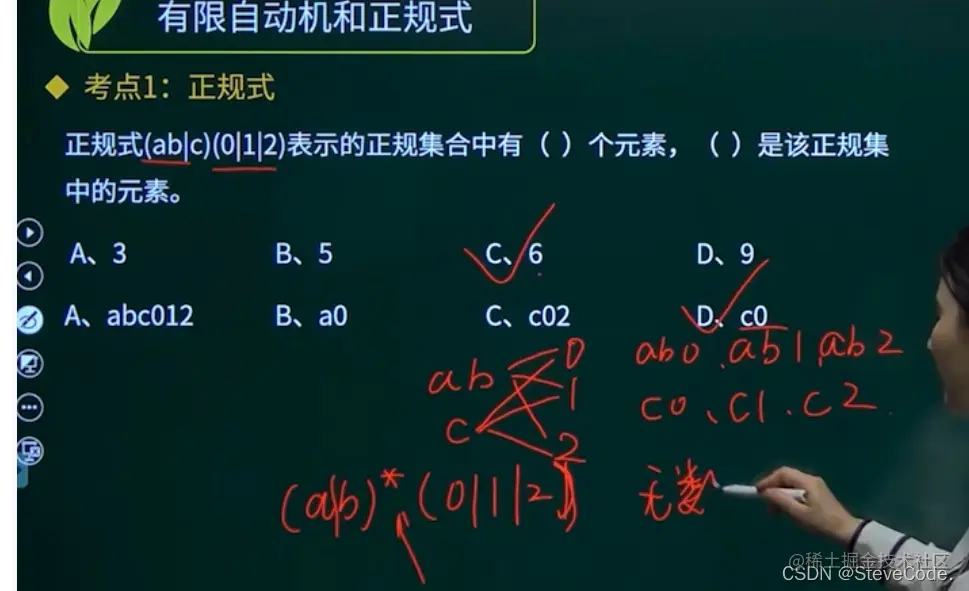 有限自动机和正规式
◆ 考点1：正规式
正规式(ab|c)(0|1|2)表示的正规集合中有（ ）个元素，（ ）是该正规集
中的元素。
A、3 B、5 C、6 D、9
A、abc012 B、a0 C、c02 D、c0
ab 0
1
c 2
ab0、ab1、ab2
c0、c1、c2
(a|b)* (0|1|2) 无数
@稀土掘金技术社区
CSDN @SteveCode.